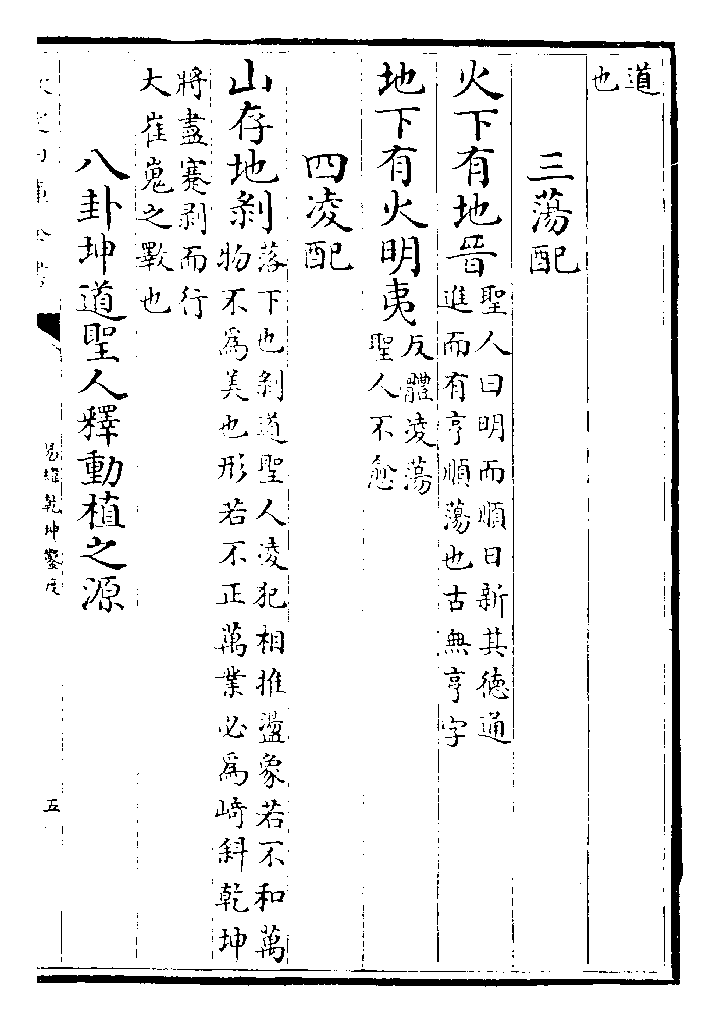 道
也
三蕩配
火下有地晉聖人曰明而順日新其德通
進而有亨順蕩也古無亨字
地下有火明夷反體凌蕩
聖人不愈
四凌配
山存地剝落下也剝道聖人凌犯相推盪象若不和萬
物不為美也形若不正萬業必為崎斜乾坤
將盡蹇剥而行
大崔嵬之斁也
八卦坤道聖人釋動植之源
乾坤鑿度
五